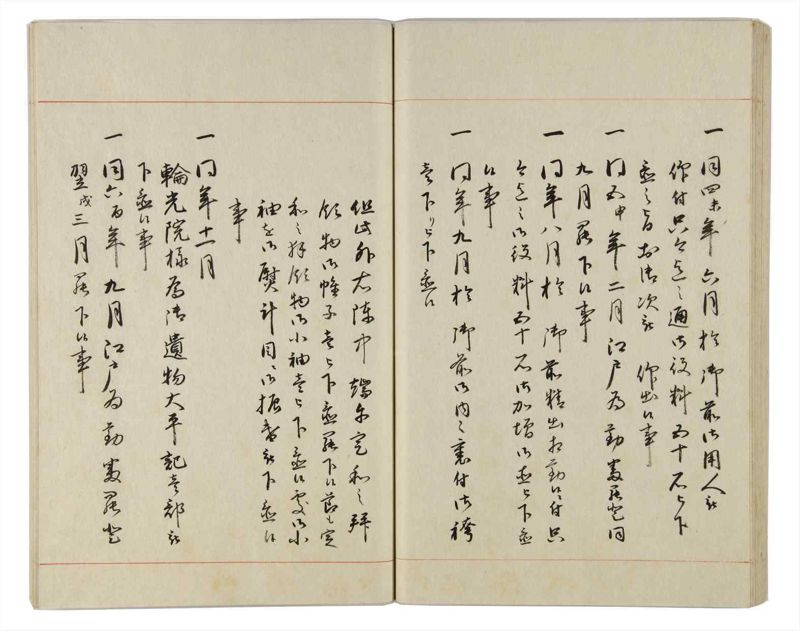 一同四未年 六月於 御前御用人被
仰付只今迄之通御役料五十石被下
置之旨 御次被 仰出候事
一同五申年二月江戸為勤番罷登同
九月罷下候事
一同年八月於 御前精出相勤候付只
今迄之御役料五十石御加増被直下置
候事
一同年九月於 御前御内々裏付御袴
壱下被下置候
但此外右陳中 之拝
領物御帷子壱被下置罷下候節も
和之拝領物御小袖壱被下置候御小
袖を御熨計目 被下置候
事
一同年十一月
輪光院様為御遺物大平記壱部被
下置候事
一同六酉年 九月江戸為勤番罷登
翌戌三月罷下候事